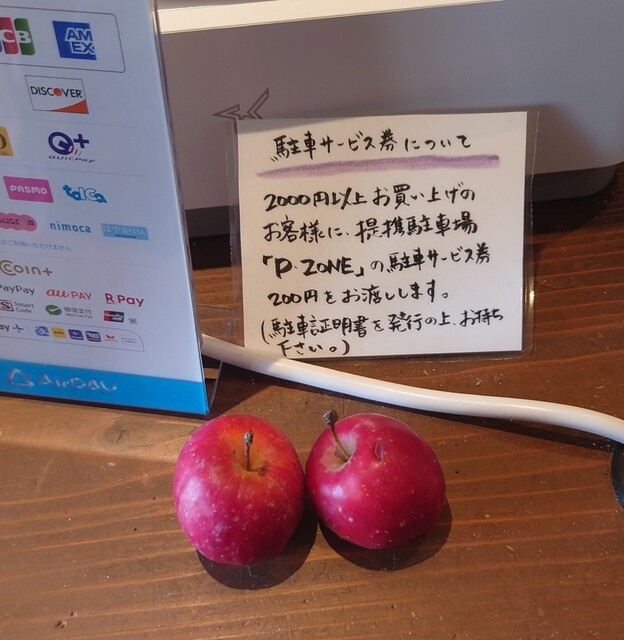 JCB
AMEX
DISCOVER
QUICPay
PASMO
toica
nimoca
はやかけん
はご利用いただけません
COIN+
PayPay
au PAY
R Pay
Smart Code
微信支付
WeChat Pay
AirPAY
駐車サービス券について
2000円以上お買い上げの
お客様に、提携駐車場
「P-ZONE」の駐車サービス券
200円をお渡しします。
(駐車証明書を発行の上、お持ち
下さい。)